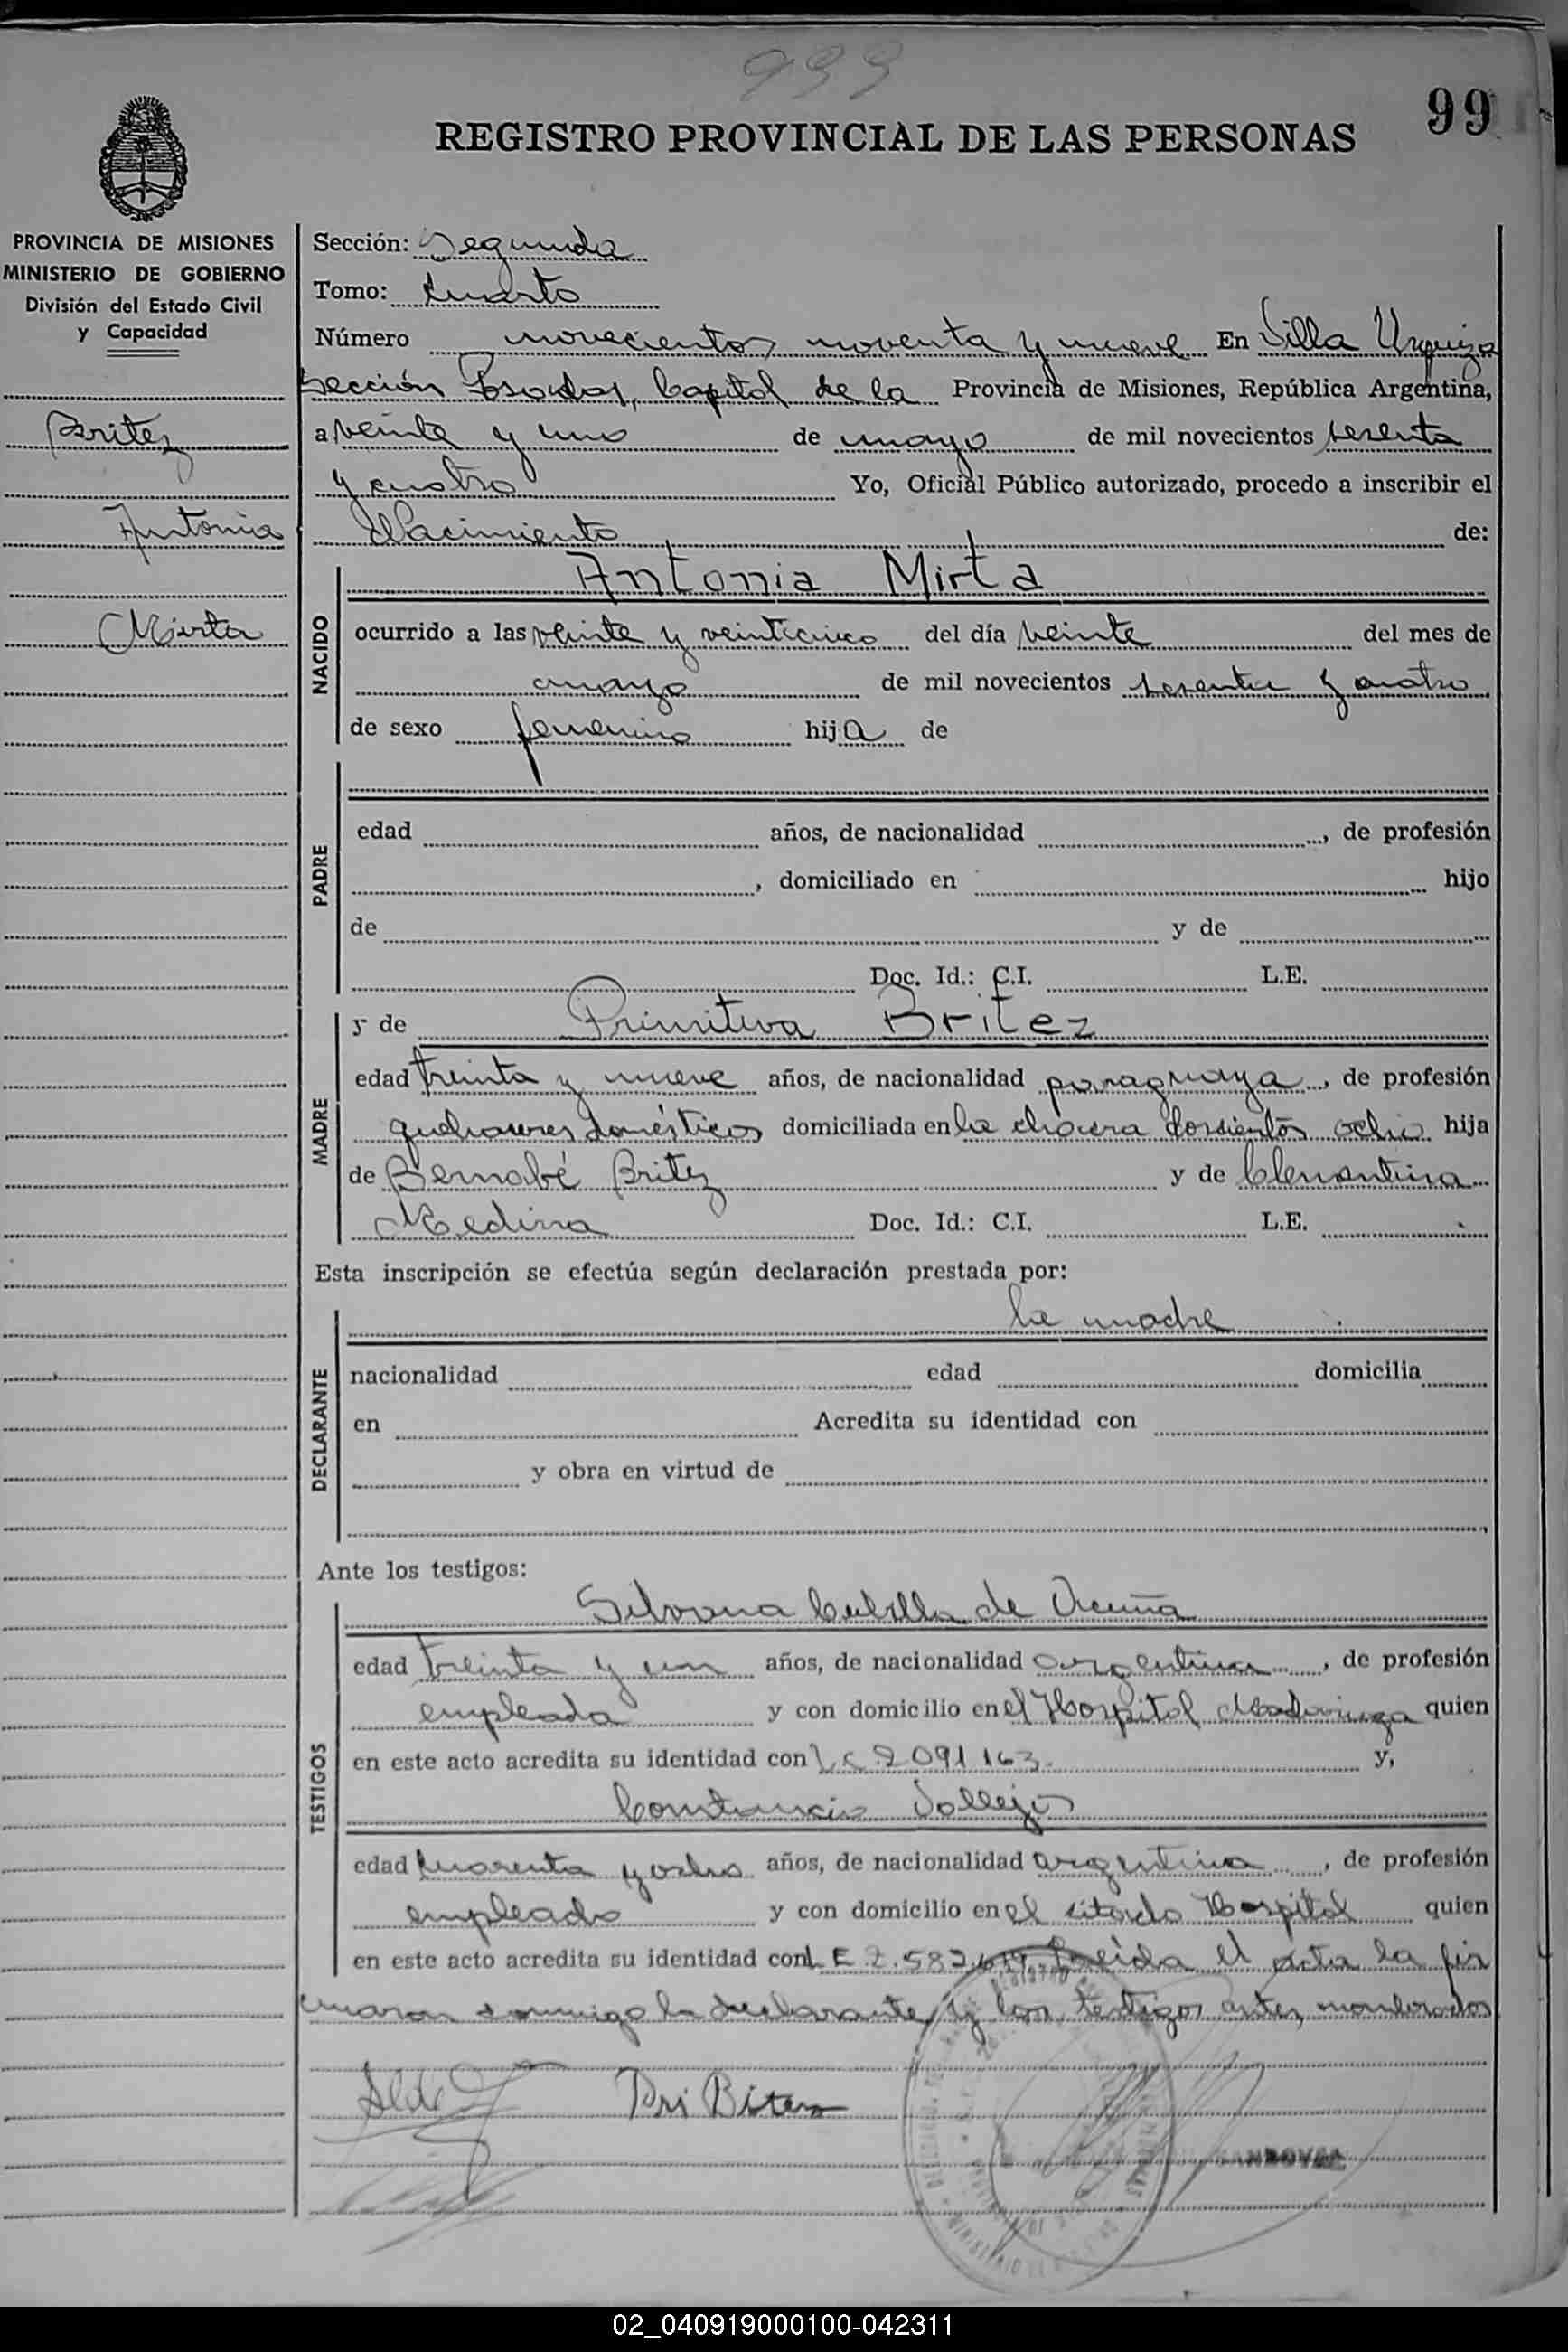 999
99
REGISTRO PROVINCIAL DE LAS PERSONAS
PROVINCIA DE MISIONES
MINISTERIO DE GOBIERNO
División del Estado Civil
y Capacidad
Britez
Antonia
Mirta
Sección: Segunda
Tomo: Cuarto
Número novecientos noventa y nueve En Villa Urquiza
Sección Posadas, Capital de la Provincia de Misiones, República Argentina,
a veinte y uno de mayo de mil novecientos sesenta
y cuatro Yo, Oficial Público autorizado, procedo a inscribir el
Nacimiento de:
NACIDO
Antonia Mirta
ocurrido a las veinte y veinticinco del día veinte del mes de
mayo de mil novecientos sesenta y cuatro
de sexo femenino hija de
PADRE
edad años, de nacionalidad , de profesión
, domiciliado en hijo
de y de
Doc. Id.: C.I. L.E.
MADRE
y de Primitiva Britez
edad treinta y nueve años, de nacionalidad paraguaya, de profesión
quehaceres domésticos domiciliada en la chacra doscientos ocho hija
de Bernabé Britez y de Clementina
Medina Doc. Id.: C.I. L.E.
Esta inscripción se efectúa según declaración prestada por:
DECLARANTE
la madre
nacionalidad edad domicilia
en Acredita su identidad con
y obra en virtud de
Ante los testigos:
TESTIGOS
Silvana Cubilla de Acuña
edad treinta y un años, de nacionalidad argentina, de profesión
empleada y con domicilio en el Hospital Madariaga quien
en este acto acredita su identidad con L C 2 091 163 y,
Constancio Vallejos
edad cuarenta y ocho años, de nacionalidad argentina, de profesión
empleado y con domicilio en el citado Hospital quien
en este acto acredita su identidad con L E 2.582. Leida el acta la fir
maron conmigo la declarante y los testigos antes nombrados
Pri Bitez
SANDOVAL
02_040919000100-042311